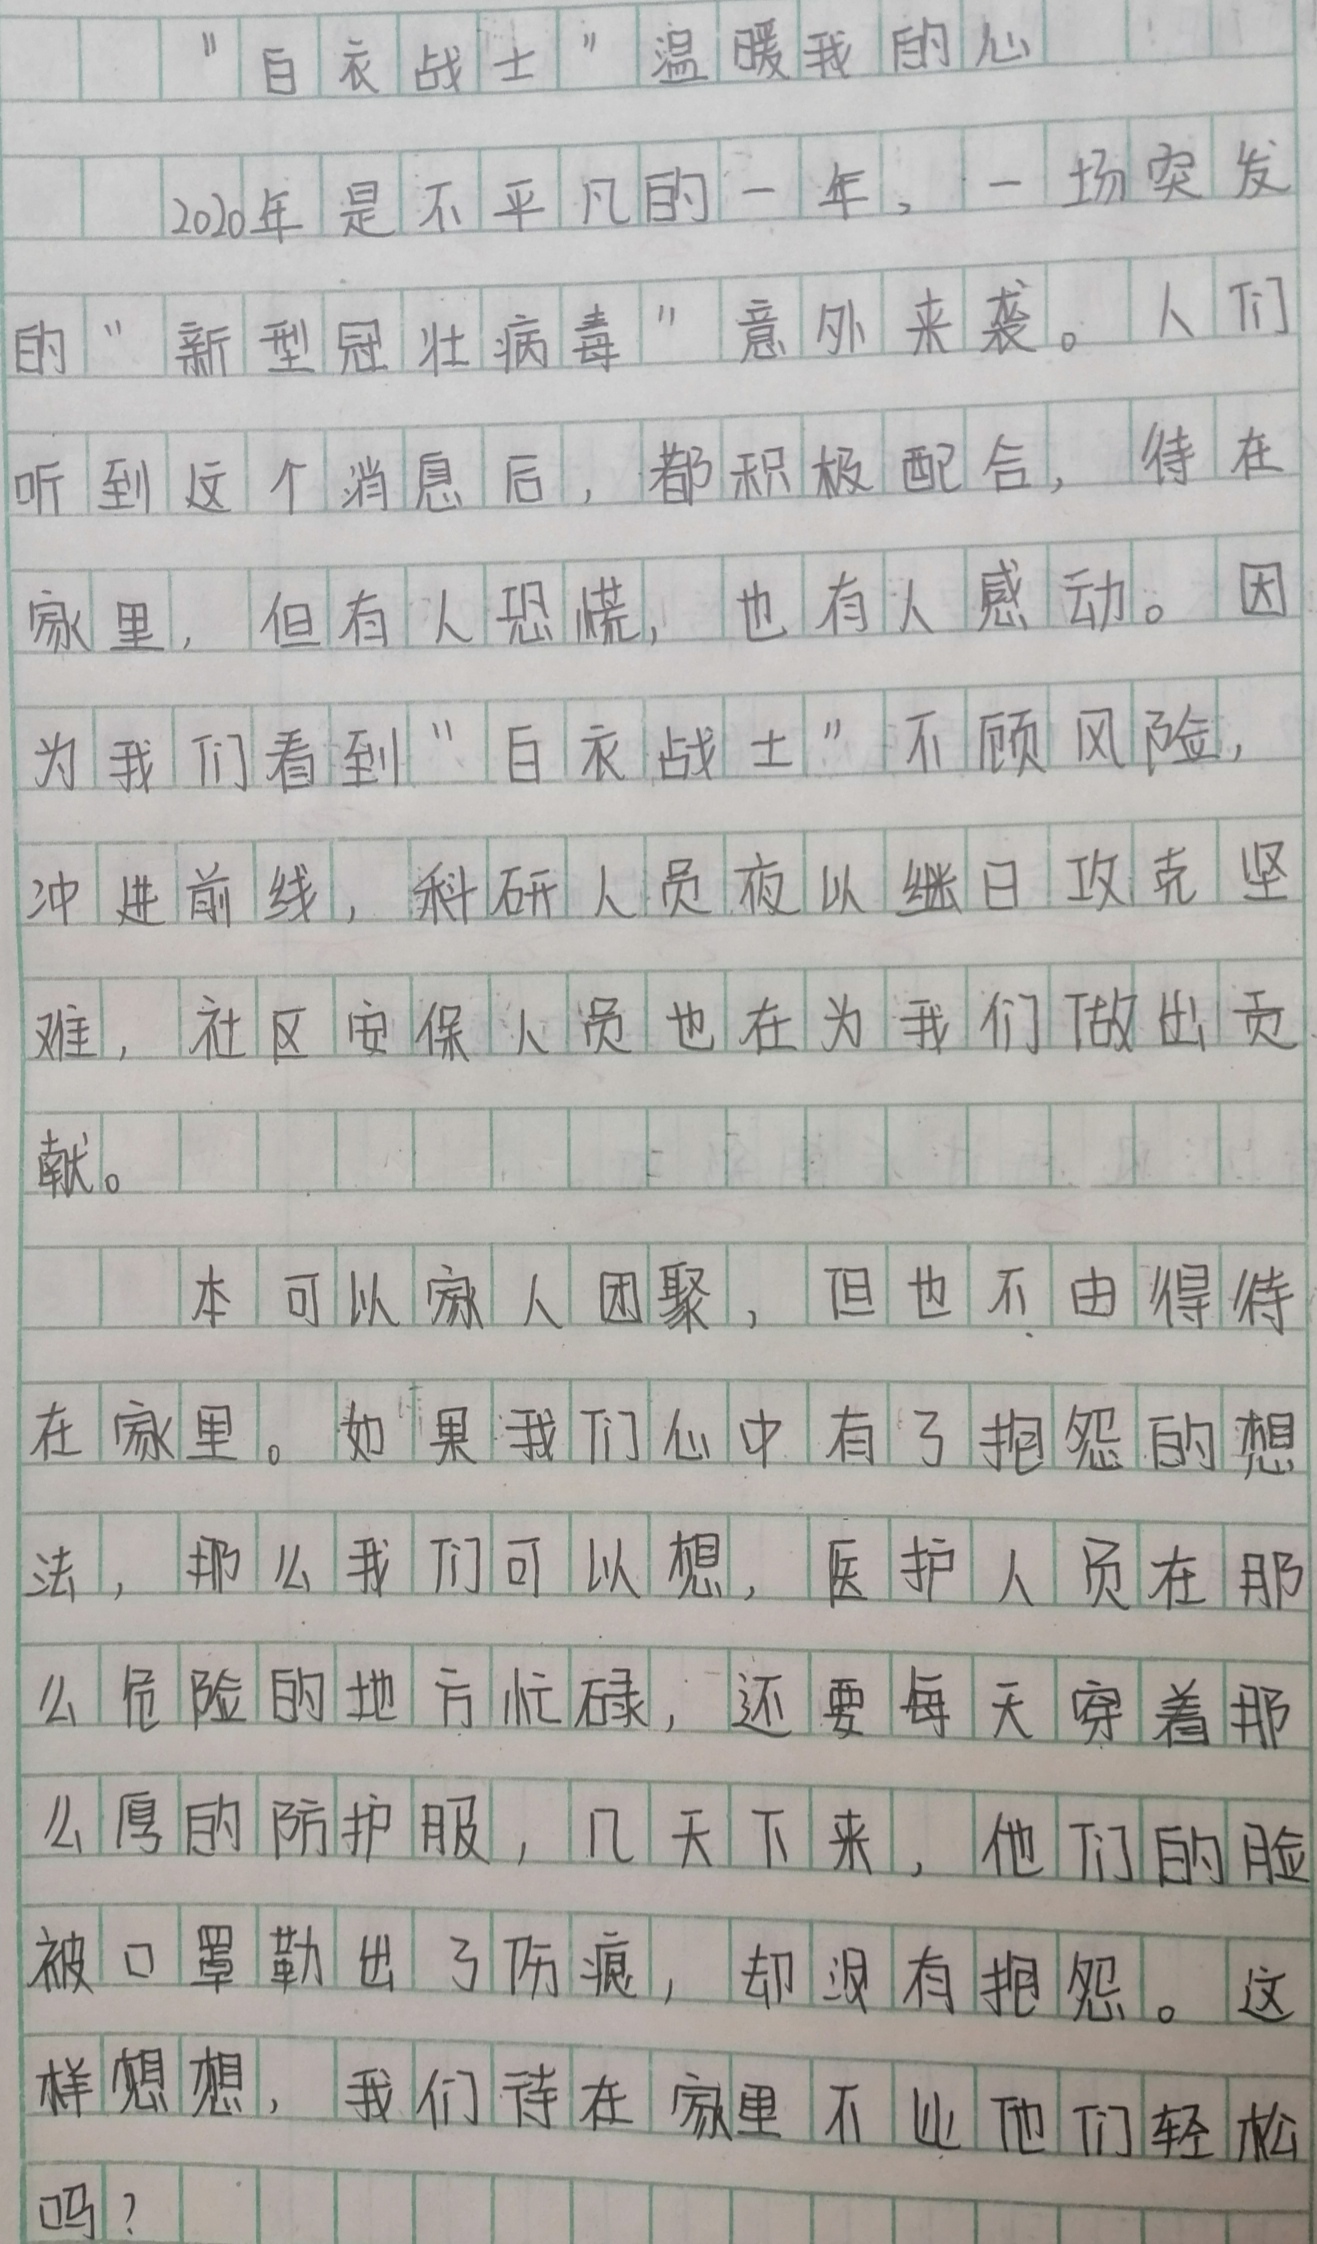 “白衣战士”温暖我的心
2020年是不平凡的一年，一场突发
的“新型冠壮病毒”意外来袭。人们
听到这个消息后，都积极配合，待在
家里，但有人恐慌，也有人感动。因
为我们看到“白衣战士”不顾风险，
冲进前线，科研人员夜以继日攻克坚
难，社区安保人员也在为我们做出贡
献。
本可以家人团聚，但也不由得待
在家里。如果我们心中有了抱怨的想
法，那么我们可以想，医护人员在那
么危险的地方忙碌，还要每天穿着那
么厚的防护服，几天下来，他们的脸
被口罩勒出了伤痕，却没有抱怨。这
样想想，我们待在家里不比他们轻松
吗？